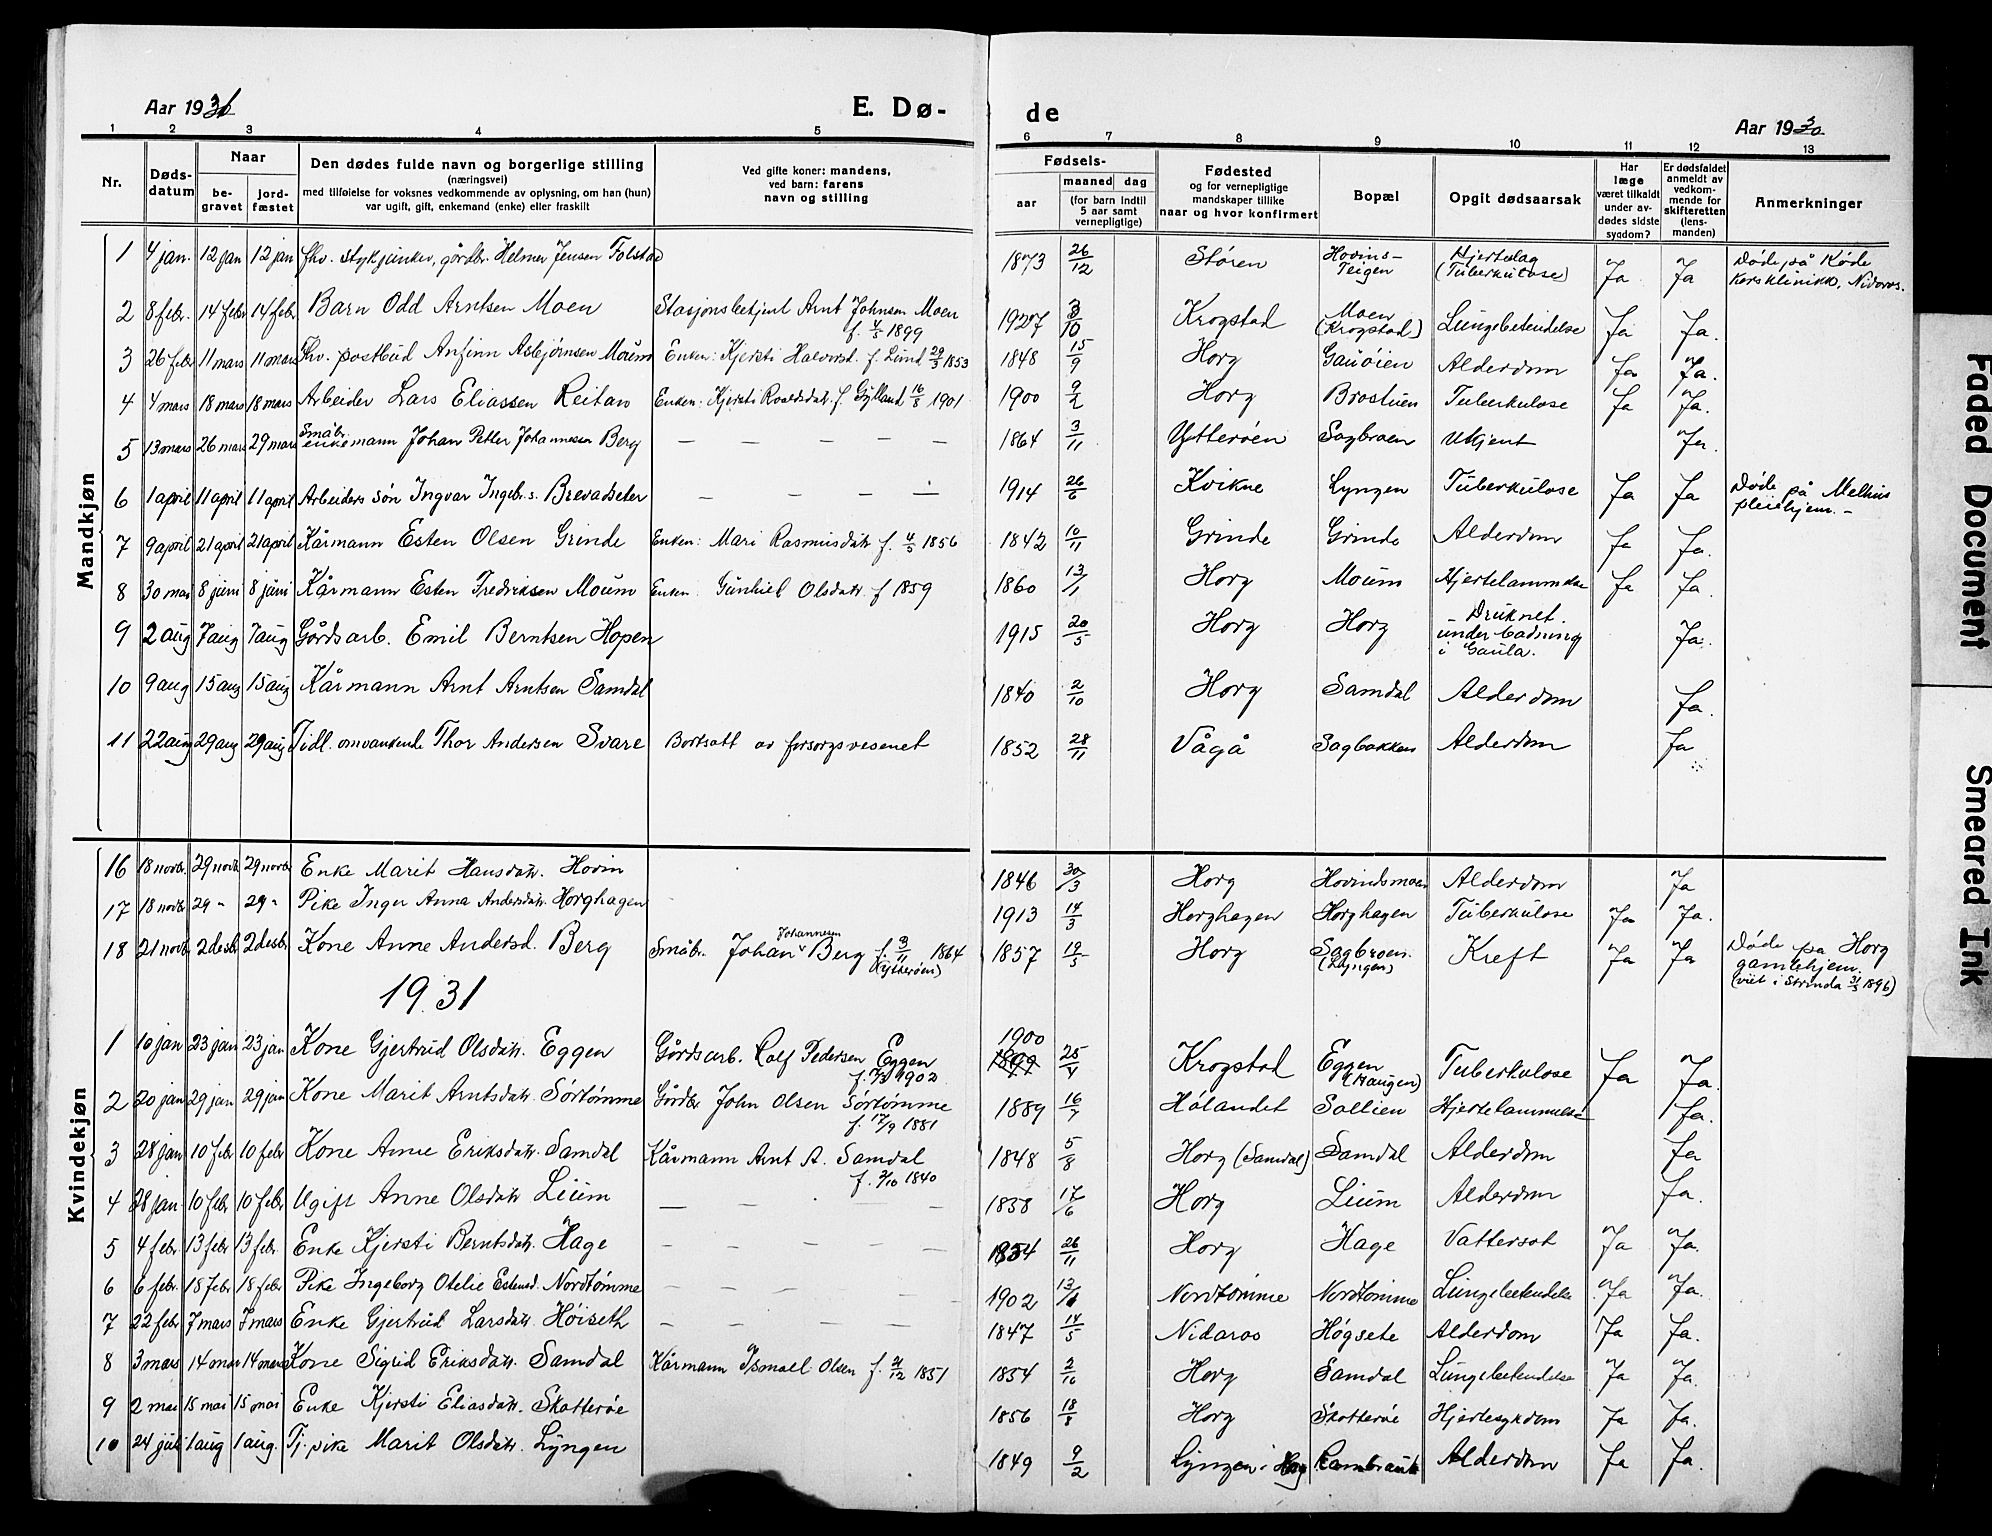 Aar 1931
E. Dø-
de
Aar 1930
1 2 3 4 5 6 7 8 9 10 11 12 13
Nr.
Dødsdatum
Naar
begravet
jordfæstet
Den dødes fulde navn og borgerlige stilling
(næringsvei)
med tilføielse for voksnes vedkommende av oplysning, om han (hun)
var ugift, gift, enkemand (enke) eller fraskilt
Ved gifte koner: mandens,
ved barn: farens
navn og stilling
Fødsels-
aar
maaned dag
(for barn indtil
5 aar samt
vernepligtige)
Fødested
og for vernepligtige
mandskaper tillike
naar og hvor konfirmert
Bopæl
Opgit dødsaarsak
Har
læge
været tilkaldt
under avdødes sidste
sygdom?
Er dødsfaldet
anmeldt av
vedkommende for
skifteretten
(lensmanden)
Anmerkninger
Mandkjøn
1 4 jan. 12 jan 12 jan fhv. stykjunker, gårdbr. Helmer Jensen Folstad 1873 26/12 Støren Hovins-Teigen Hjerteslag (Tuberkulose) Ja Ja Døde på Røde Kors klinikk, Nidaros.
2 8 febr. 14 febr 14 febr Barn Odd Arntsen Moen Stasjonsbetjent Arnt Johnsen Moen f. 4/5 1899 1927 3/10 Krogstad Moen (Krogstad) Lungebetendelse Ja Ja.
3 26 febr 11 mars 11 mars Fhv. postbud Anfinn Asbjørnsen Moum Enken: Kjersti Halvorsd. f. Lund 29/3 1853 1848 15/9 Horg Gauøien Alderdom Ja Ja.
4 4 mars 18 mars 18 mars Arbeider Lars Eliassen Reitan Enken: Kjersti Roaldsdatr. f. Gylland 16/8 1901 1900 9/2 Horg Brostuen Tuberkulose Ja Ja.
5 13 mars 26 mars 29 mars Småbr. enkemann Johan Petter Johannesen Berg — — — — — 1864 3/11 Ytterøen Sagbroen Ukjent Ja.
6 1 april 11 april 11 april Arbeiders søn Ingvar Ingebr.s. Brevadseter — — — — 1914 26/6 Kvikne Lyngen Tuberkulose Ja Ja Døde på Melhus pleiehjem. –
7 9 april 21 april 21 april Kårmann Esten Olsen Grinde Enken: Mari Rasmusdatr f. 4/5 1856 1842 10/11 Grinde Grinde Alderdom Ja Ja.
8 30 mai 8 juni 8 juni Kårmann Esten Fredriksen Moum Enken Gunhild Olsdatr. f 1859 1860 13/1 Horg Moum Hjertelammelse Ja Ja.
9 2 aug 7 aug 7 aug Gårdsarb. Emil Berntsen Hopen 1915 20/5 Horg Horg – Druknet. under badning i Gaula. Ja.
10 9 aug 15 aug 15 aug Kårmann Arnt Arntsen Samdal 1840 2/10 Horg Samdal Alderdom Ja.
11 22 aug 29 aug 29 aug Tidl. omvankende Thor Andersen Svare Bortsatt av forsorgsvesenet 1852 28/11 Vågå Sagbakken Alderdom Ja
Kvindekjøn
16 18 novbr. 29 novbr 29 novbr Enke Marit Hansdatr. Hovin 1846 30/3 Horg Hovindsmoen Alderdom Ja
17 18 novbr 29 " 29 " Pike Inger Anna Andersdatr. Horghagen 1913 14/3 Horghagen Horghagen Tuberkulose Ja Ja.
18 21 novbr 2 desbr 2 desbr. Kone Anne Andersd. Berg Småbr. Johan Johannesen Berg f. 3/11 1864 (Ytterøen) 1857 19/5 Horg Sagbroen. (Lyngen) Kreft Ja Ja Døde på Horg gamlehjem. (viet i Strinda 31/5 1896)
1931
1 10 jan 23 jan 23 jan Kone Gjertrud Olsdatr. Eggen Gårdsarb. Rolf Pedersen Eggen f. 7/3 1902 1900 1899 25/4 Krogstad Eggen (Haugen) Tuberkulose Ja Ja.
2 20 jan 29 jan 29 jan Kone Marit Arntsdatr. Sørtømme Gårdbr John Olsen Sørtømme f. 17/9 1881 1889 16/7 Hølandet Sollien Hjertelammelse Ja.
3 28 jan 10 febr 10 febr Kone Anne Eriksdatr. Samdal Kårmann Arnt A. Samdal f. 2/10 1840 1848 5/8 Horg (Samdal) Samdal Alderdom Ja
4 28 jan. 10 febr 10 febr. Ugift Anne Olsdatr Lium — — — 1838 17/6 Horg Lium Alderdom Ja.
5 4 febr. 13 febr 13 febr. Enke Kjersti Berntsdatr. Hage – – – – – 1854 26/11 Horg Hage Vattersot Ja Ja.
6 6 febr. 18 febr 18 febr. Pike Ingeborg Otelie Estensd. Nordtømme — — — — 1902 13/11 Nordtømme Nordtømme Lungebetendelse Ja Ja.
7 22 febr 7 mars 7 mars Enke Gjertrud Larsdatr. Høiseth — — — — 1847 14/5 Nidaros Høgsete Alderdom Ja Ja.
8 3 mars 14 mars 14 mars Kone Sigrid Eriksdatr. Samdal Kårmann Ismael Olsen f. 21/12 1851 1854 2/10 Horg Samdal Lungebetendelse Ja Ja.
9 2 mai 15 mai 15 mai Enke Kjersti Eliasdatr. Skotterøe 1856 18/8 Horg Skotterøe Hjertesykdom Ja Ja.
10 24 juli 1 aug 1 aug. Tj. pike Marit Olsdatr. Lyngen 1849 9/2 Lyngen i Horg Alderdom Ja Ja.
Faded Document
Smeared Ink